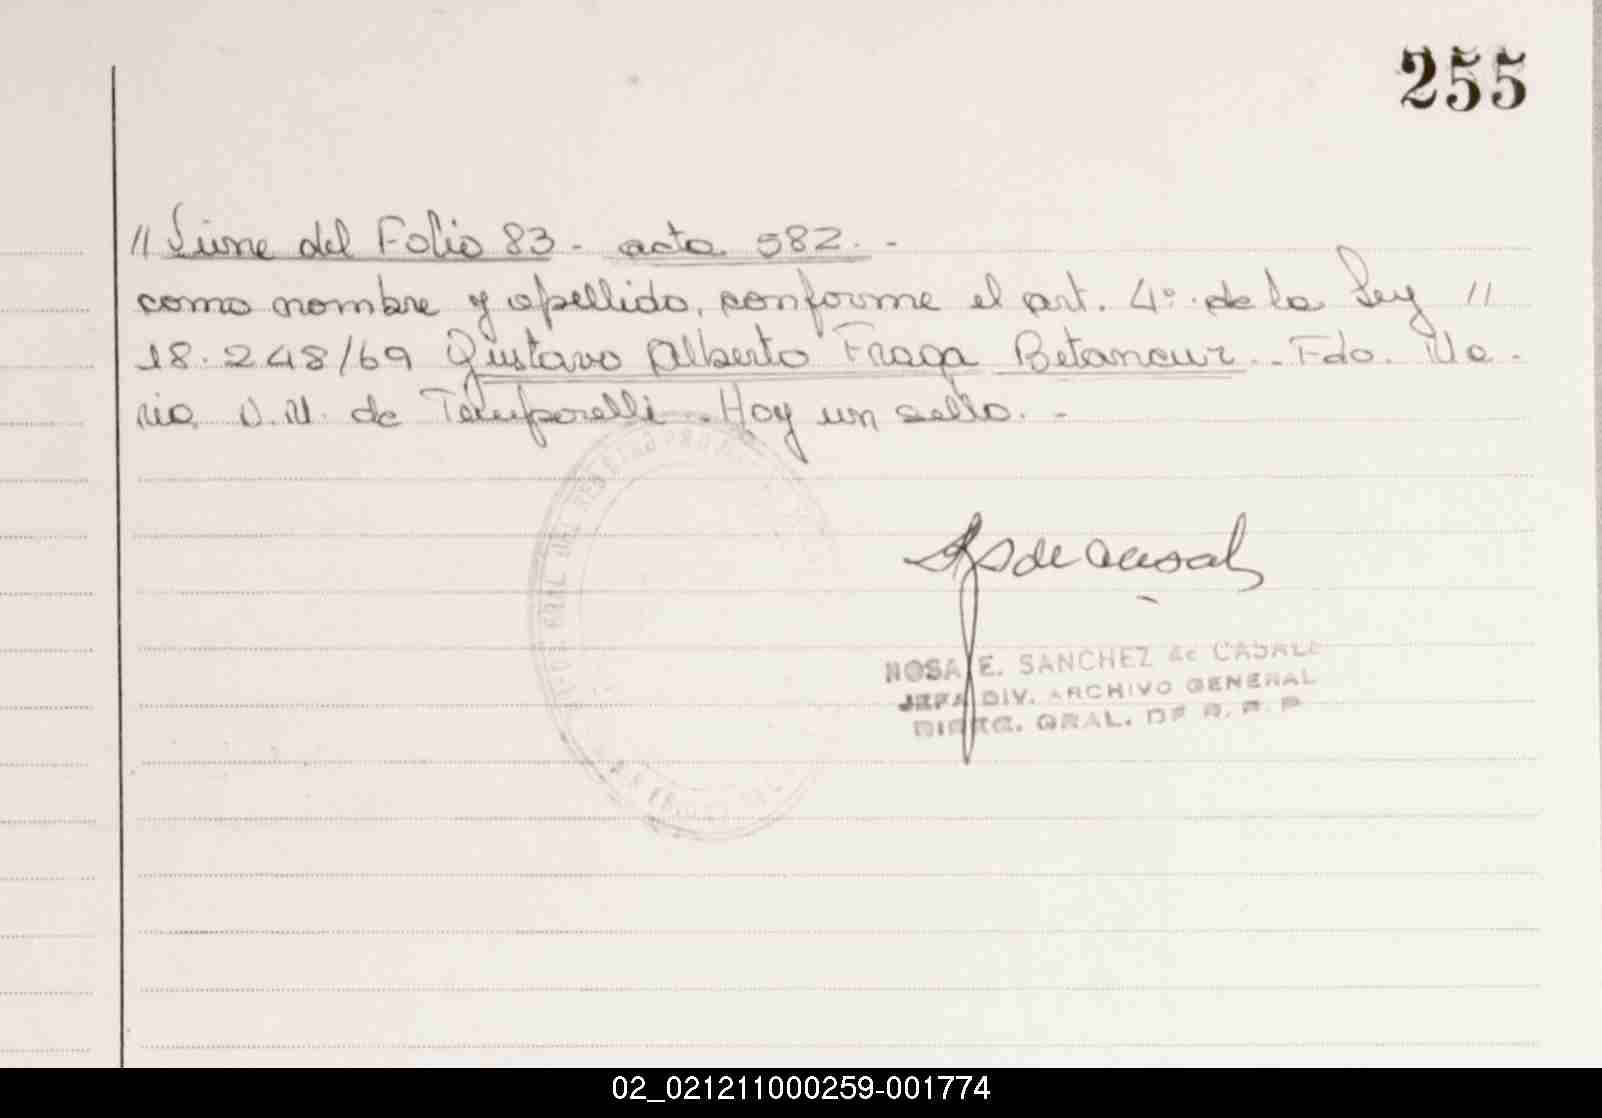 255
// Viene del Folio 83 - acta 582. -
como nombre y apellido, conforme el art. 4º. de la Ley //
18.248/69 Gustavo Alberto Fraga Betancur. - Fdo. Ma-
ria D.M. de Temporelli - Hoy un sello. -
GRAL DEL REGISTRO
ROSA E. SANCHEZ de CASAL
JEFA DIV. ARCHIVO GENERAL
DIREC. GRAL. DE R. E. P
02_021211000259-001774